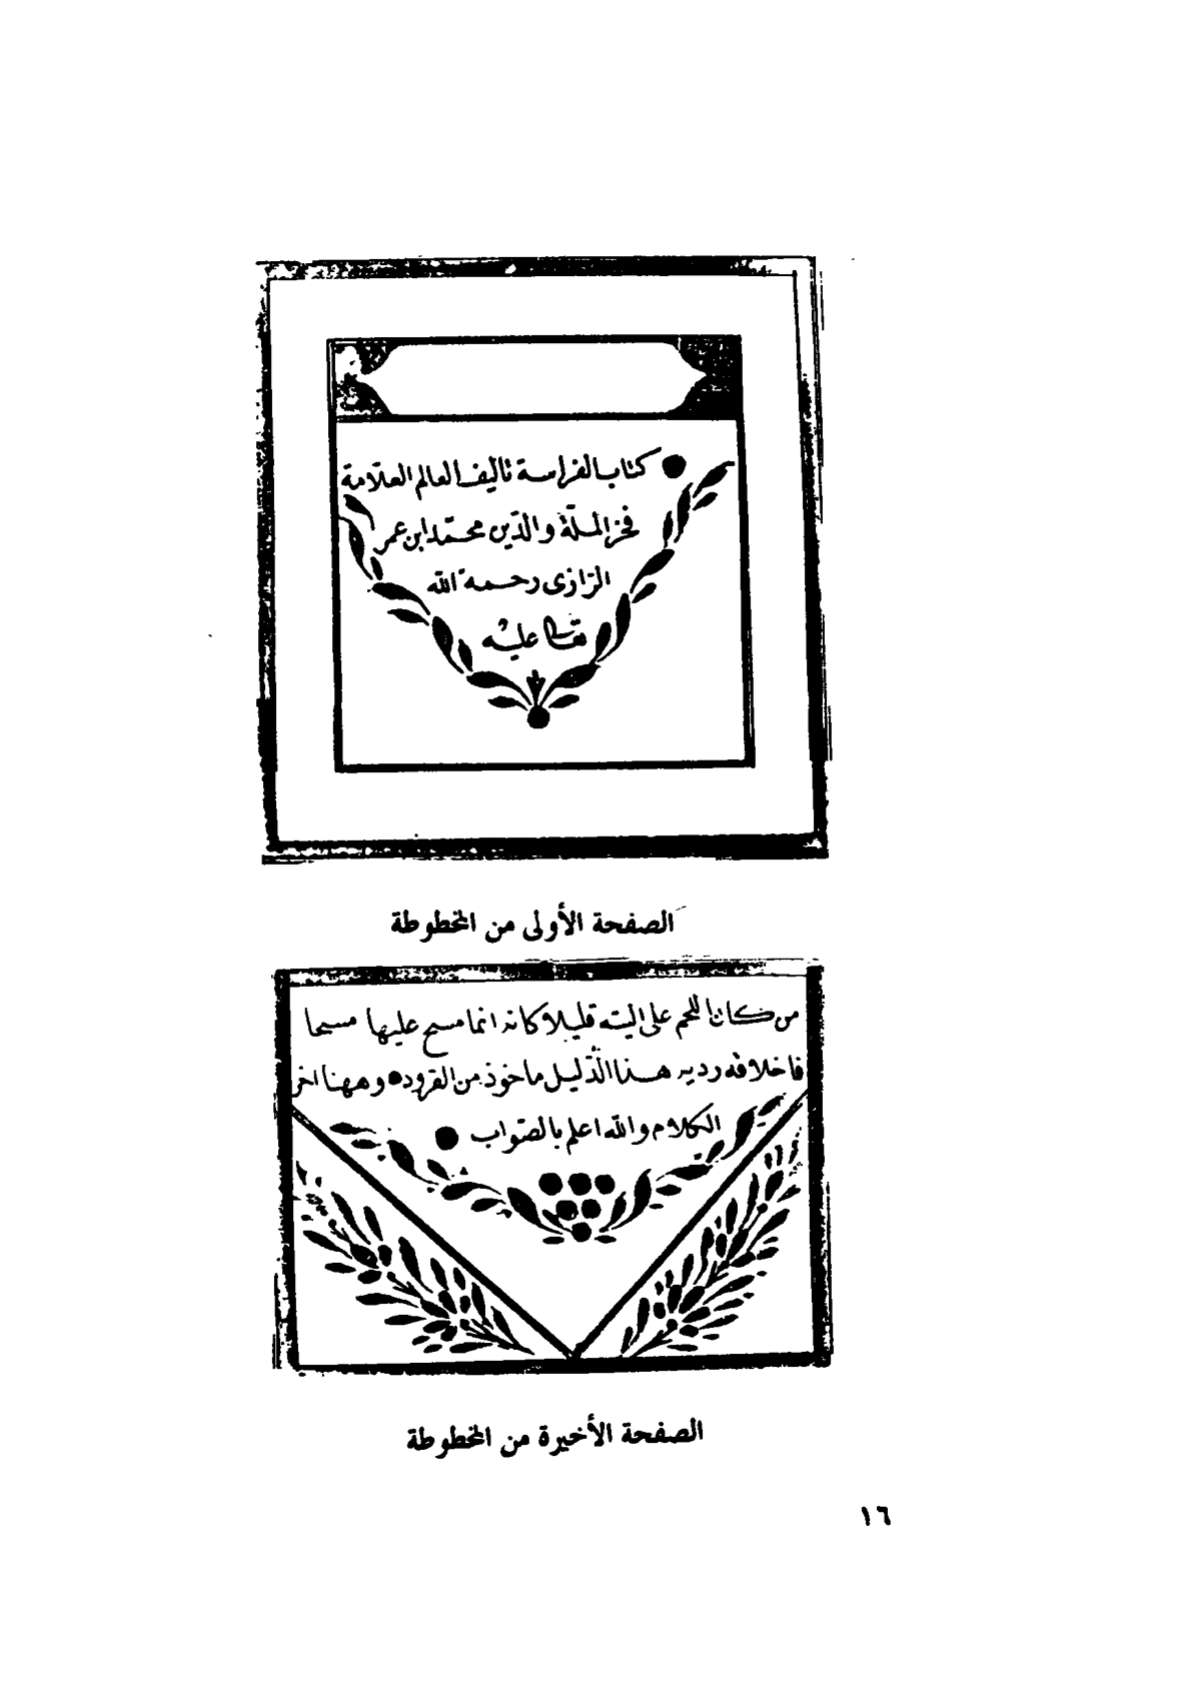 كتاب الفراسة تأليف العالم العلّامة
فخر الملّة والدّين محمّد ابن عمر
الرّازى رحمه الله
تعالى عليه
الصفحة الأولى من المخطوطة
من كان اللحم على اليته قليلا كانه انما مسح عليها مسحا
فاخلاقه رديه هذا الدّليل ماخوذ من القرود وههنا اخر
الكلام والله اعلم بالصّواب
الصفحة الأخيرة من المخطوطة
١٦